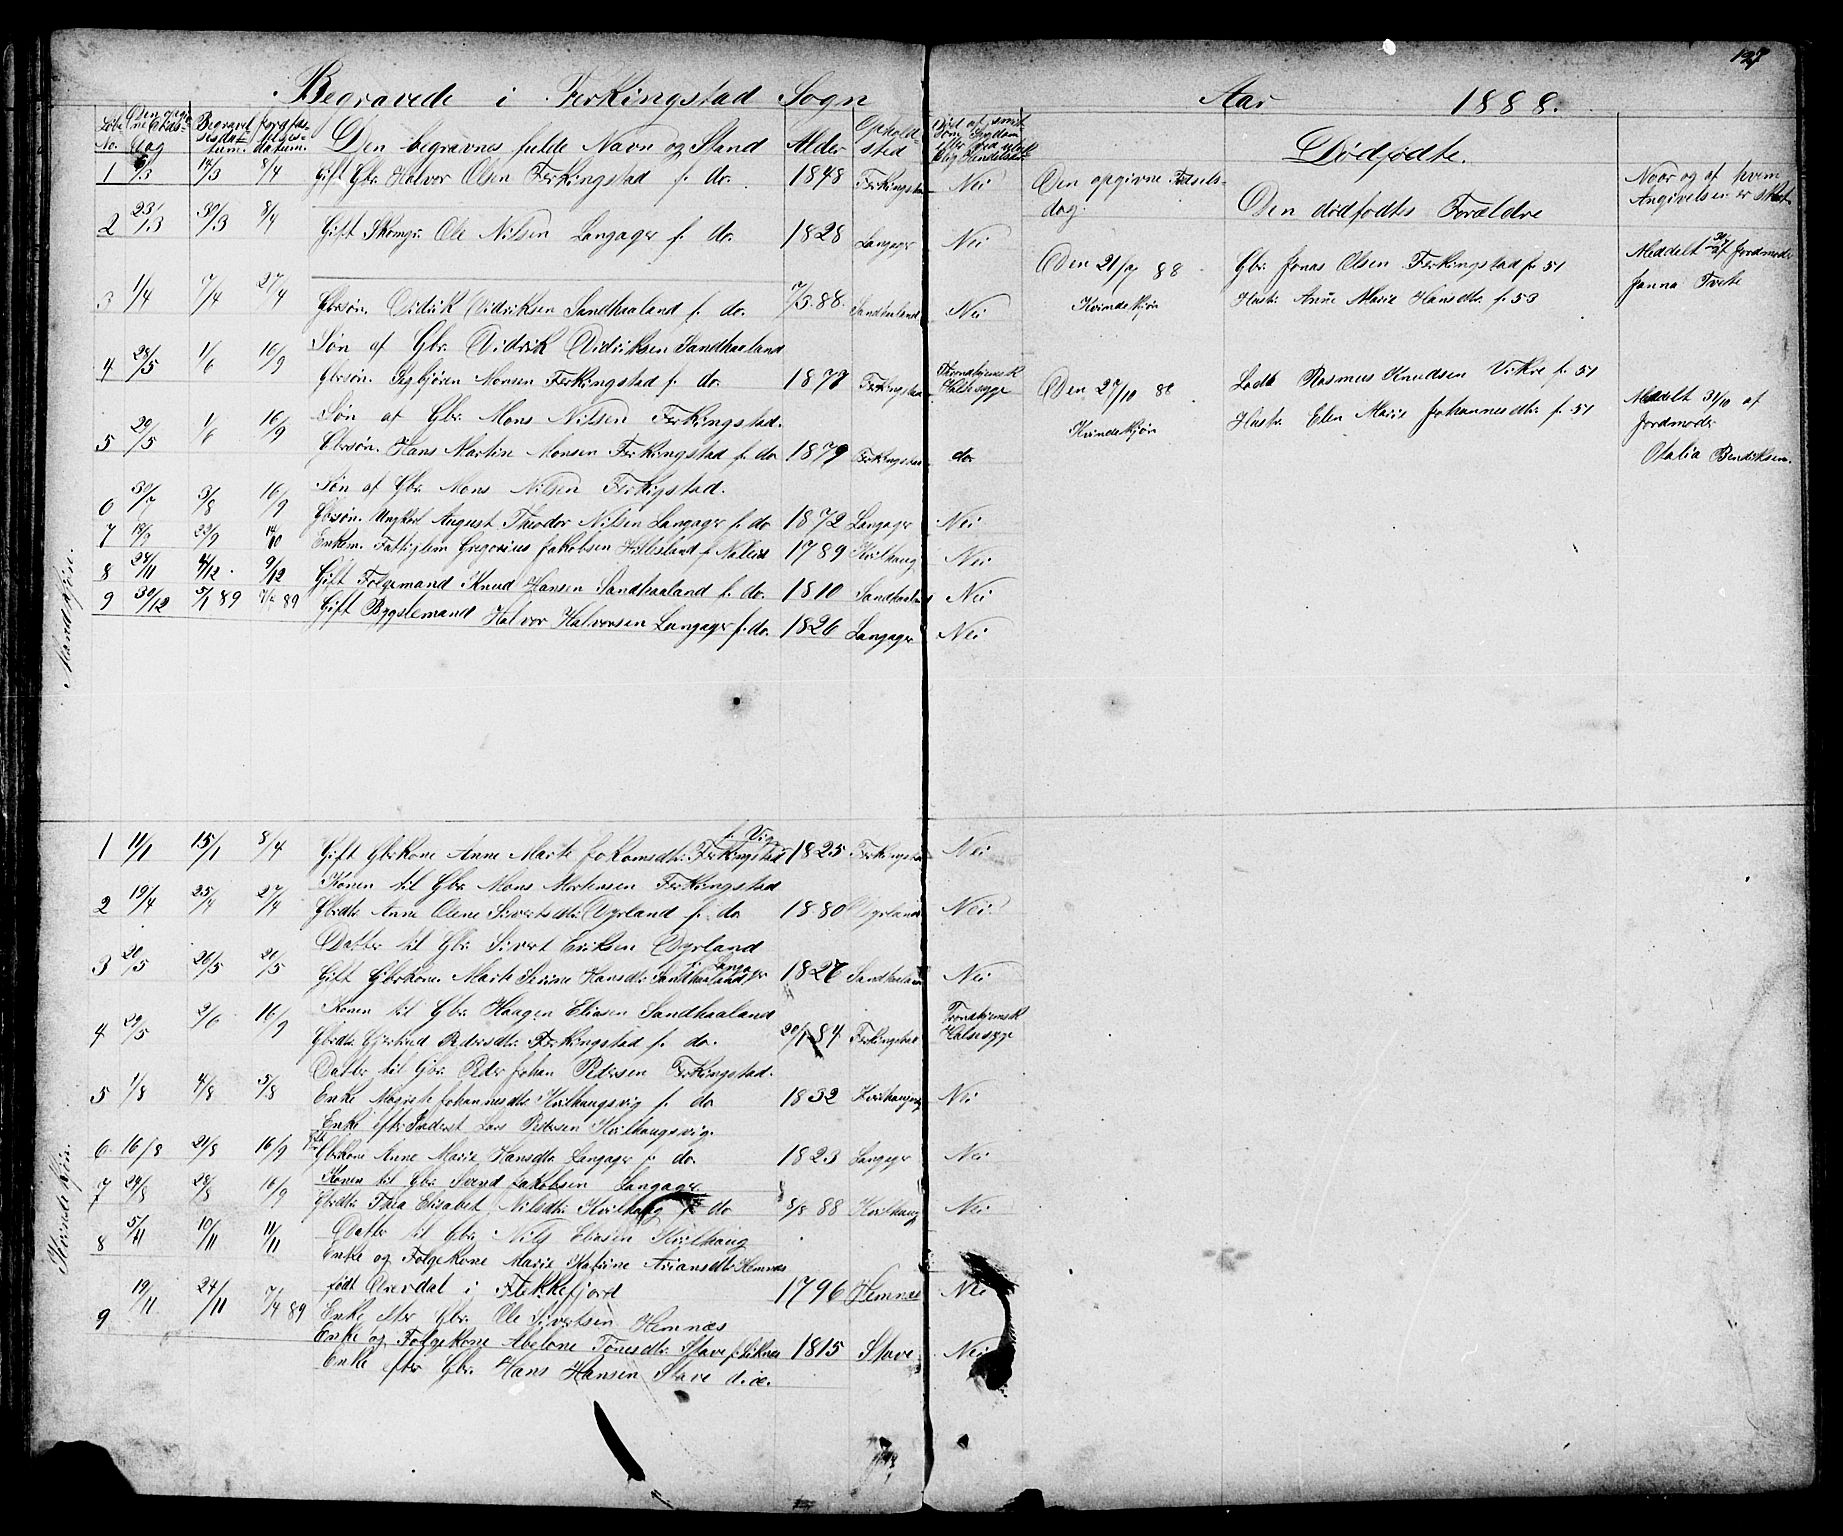 127
Begravede i Ferkingstad Sogn
Aar 1888.
Løbe No.
Dag
Begravelsesdatum
Den begravnes fulde Navn og Stand
Alder
Opholdssted
Dødfødte.
Den opgivne Fødselsdag.
Den dødfødtes Forældre
Naar og af hvem Angivelsen er skeet
Mandekjøn.
1 6/3 14/3 8/4 Gift Gbr. Halvor Olsen Ferkingstad f. do. 1848 Ferkingstad Nei
2 23/3 30/3 8/4 Gift Skomgr. Ole Nilsen Langager f. do. 1828 Langager Nei
3 1/4 7/4 27/4 Gbrsøn. Didrik Didriksen Sandhaaland f. do. 7/3 88. Sandhaaland Nei
Søn af Gbr. Didrik Didriksen Sandhaaland
4 28/5 1/6 16/9 Gbrsøn. Sigbjøren Monsen Ferkingstad f. do. 1877 Ferkingstad Trondhjemsk Halssyge
Søn af Gbr. Mons Nilsen Ferkingstad.
5 29/5 1/6 16/9 Gbrsøn. Hans Martin Monsen Ferkingstad f. do 1879 Ferkingstad do.
Søn af Gbr. Mons Nilsen Ferkigstad.
6 30/7 3/8 16/9 Gbrsøn. Ungkarl August Theodor Nilsen Langager f. do 1872 Langager Nei
7 18/9 22/9 14/10 Enkem. Fattiglem Gregorius Jakobsen f. 1789 Kvilhaug Nei
8 24/11 4/12. 9/12 Gift Folgemand Knud Hansen Sandhaaland f. do. 1810 Sandhaaland Nei
9 30/12 5/1 89 89 Gift Bygslemand Halvor Halvorsen Langager f. do. 1826 Langager Nei
Den 21/7 88 Gbr. Jonas Olsen Ferkingstad f. 51
Kvindekjøn Hustr. Anne Marie Hansdtr. f. 53
Meddelt af Jordmoder
Janna Tvete
Den 27/10 88 Rasmus Knudsen Vikre f. 51
Kvindekjøn Hustr. Elen Marie Johannesdtr. f. 51
Meddelt 31/10 af
Jordmoder
Otalia Bendiksen.
Kvindekjøn.
f. Vig
1 11/1 15/1 8/4 Gift Gbrkone Anne Marte Ferkingstad 1825 Ferkingstad Nei
Konen til Gbr. Mons Mortensen Ferkingstad
2 19/4 25/4 27/4 Gbrdtr. Anne Olene Sivertsdtr. Dyrland f. do 1880 Dyrland Nei.
Datter til Gbr. Sivert Eriksen Dyrland
3 20/5 26/5 26/5 Gift Gbrkone. Marte Serine Hansdtr. Sandhaaland f. Langager 1827 Sandhaaland Nei
Konen til Gbr. Haagen Eliasen Sandhaaland
4 29/5 2/6 16/9 Gbrdtr. Gjertrud Pedersdtr. Ferkingstad f. do. 84. Ferkingstad Trondhjemsk Halssyge
Datter til Gbr. Peder Johan Pedersen Ferkingstad.
5 1/8 4/8 5/8 Enke Magrete Johannesdtr. Kvilhaugsvig f. do 1832 Kvilhaugsvig Nei
Enke efter Lars Pedersen Kvilhaugsvig.
6 16/8 21/8 16/9 Gbrkone Anne Marie Hansdtr. Langager f. do. 1823 Langager Nei
Konen til Gbr. Svend Jakobsen Langager
7 24/8 28/8 16/9 Gbrdtr. Thea Elisabet Nilsdtr. Kvilhaug f. do 5/8 88 Kvilhaug Nei
Datter til Gbr. Nils Eliasen Kvilhaug
8 5/11 10/11 11/11 Enke og Folgekone Marie Katrine Ariansdtr. Hemnæs
født Overdal i Flekkefjord 1796 Hemnes Nei
Enke efter Gbr. Ole Sivertsen Hemnæs
9 19/11 24/11 7/4 89 Enke og Folgekone Abelone Tønesdtr. Stave f. Liknes 1815 Stave Nei
Enke efter Gbr. Hans Hansen Stave